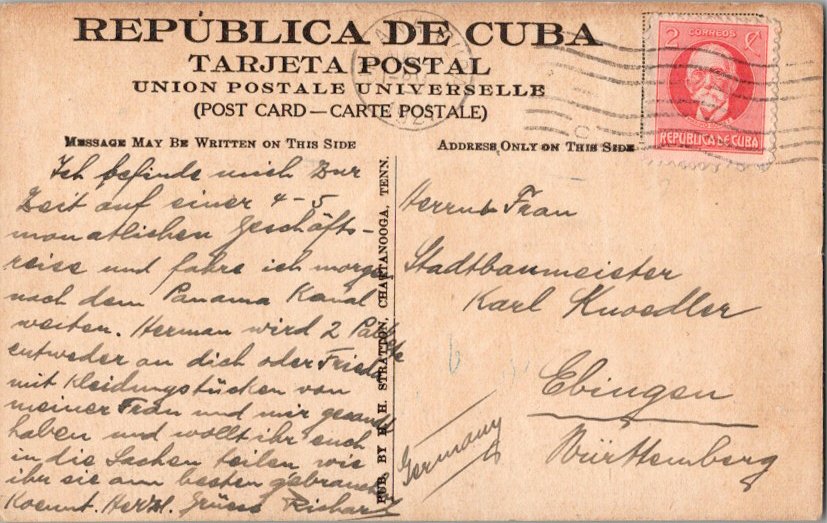 REPÚBLICA DE CUBA
TARJETA POSTAL
UNION POSTALE UNIVERSELLE
(POST CARD—CARTE POSTALE)
MESSAGE MAY BE WRITTEN ON THIS SIDE
ADDRESS ONLY ON THIS SIDE
2 CORREOS
REPÚBLICA DE CUBA
Ich befinde mich zur
Zeit auf einer 4-5
monatlichen Geschäfts-
reise und fahre ich morgen
nach dem Panama Kanal
weiter. Herman wird 2 Pakete
entweder an dich oder Frieda
mit Kleidungstücken von
meiner Frau und mir gesandt
haben und wollt ihr euch
in die Sachen teilen, wie
ihr sie am besten gebrauchen
Koennt. Herzl. Grüsse Richard
PUB. BY H. H. STRATTON, CHATTANOOGA, TENN.
Herrn u. Frau
Stadtbaumeister
Karl Knoedler
Ebingen
Württemberg
Germany